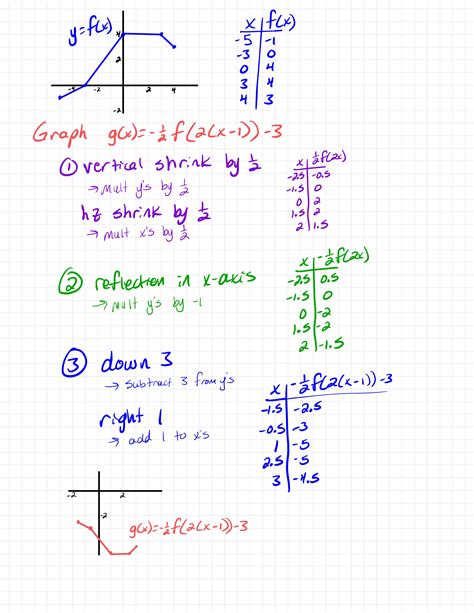 y=f(x)
4
2
-4 -2 2 4
-2
x f(x)
-5 -1
-3 0
0 4
3 4
4 3
Graph g(x)=-½f(2(x-1))-3
① vertical shrink by ½
→ mult y's by ½
hz shrink by ½
→ mult x's by ½
x ½f(2x)
-2.5 -0.5
-1.5 0
0 2
1.5 2
2 1.5
② reflection in x-axis
→ mult y's by -1
x -½f(2x)
-2.5 0.5
-1.5 0
0 -2
1.5 -2
2 -1.5
③ down 3
→ subtract 3 from y's
right 1
→ add 1 to x's
x -½f(2(x-1))-3
-1.5 -2.5
-0.5 -3
1 -5
2.5 -5
3 -4.5
-2 2
-2
g(x)=-½f(2(x-1))-3